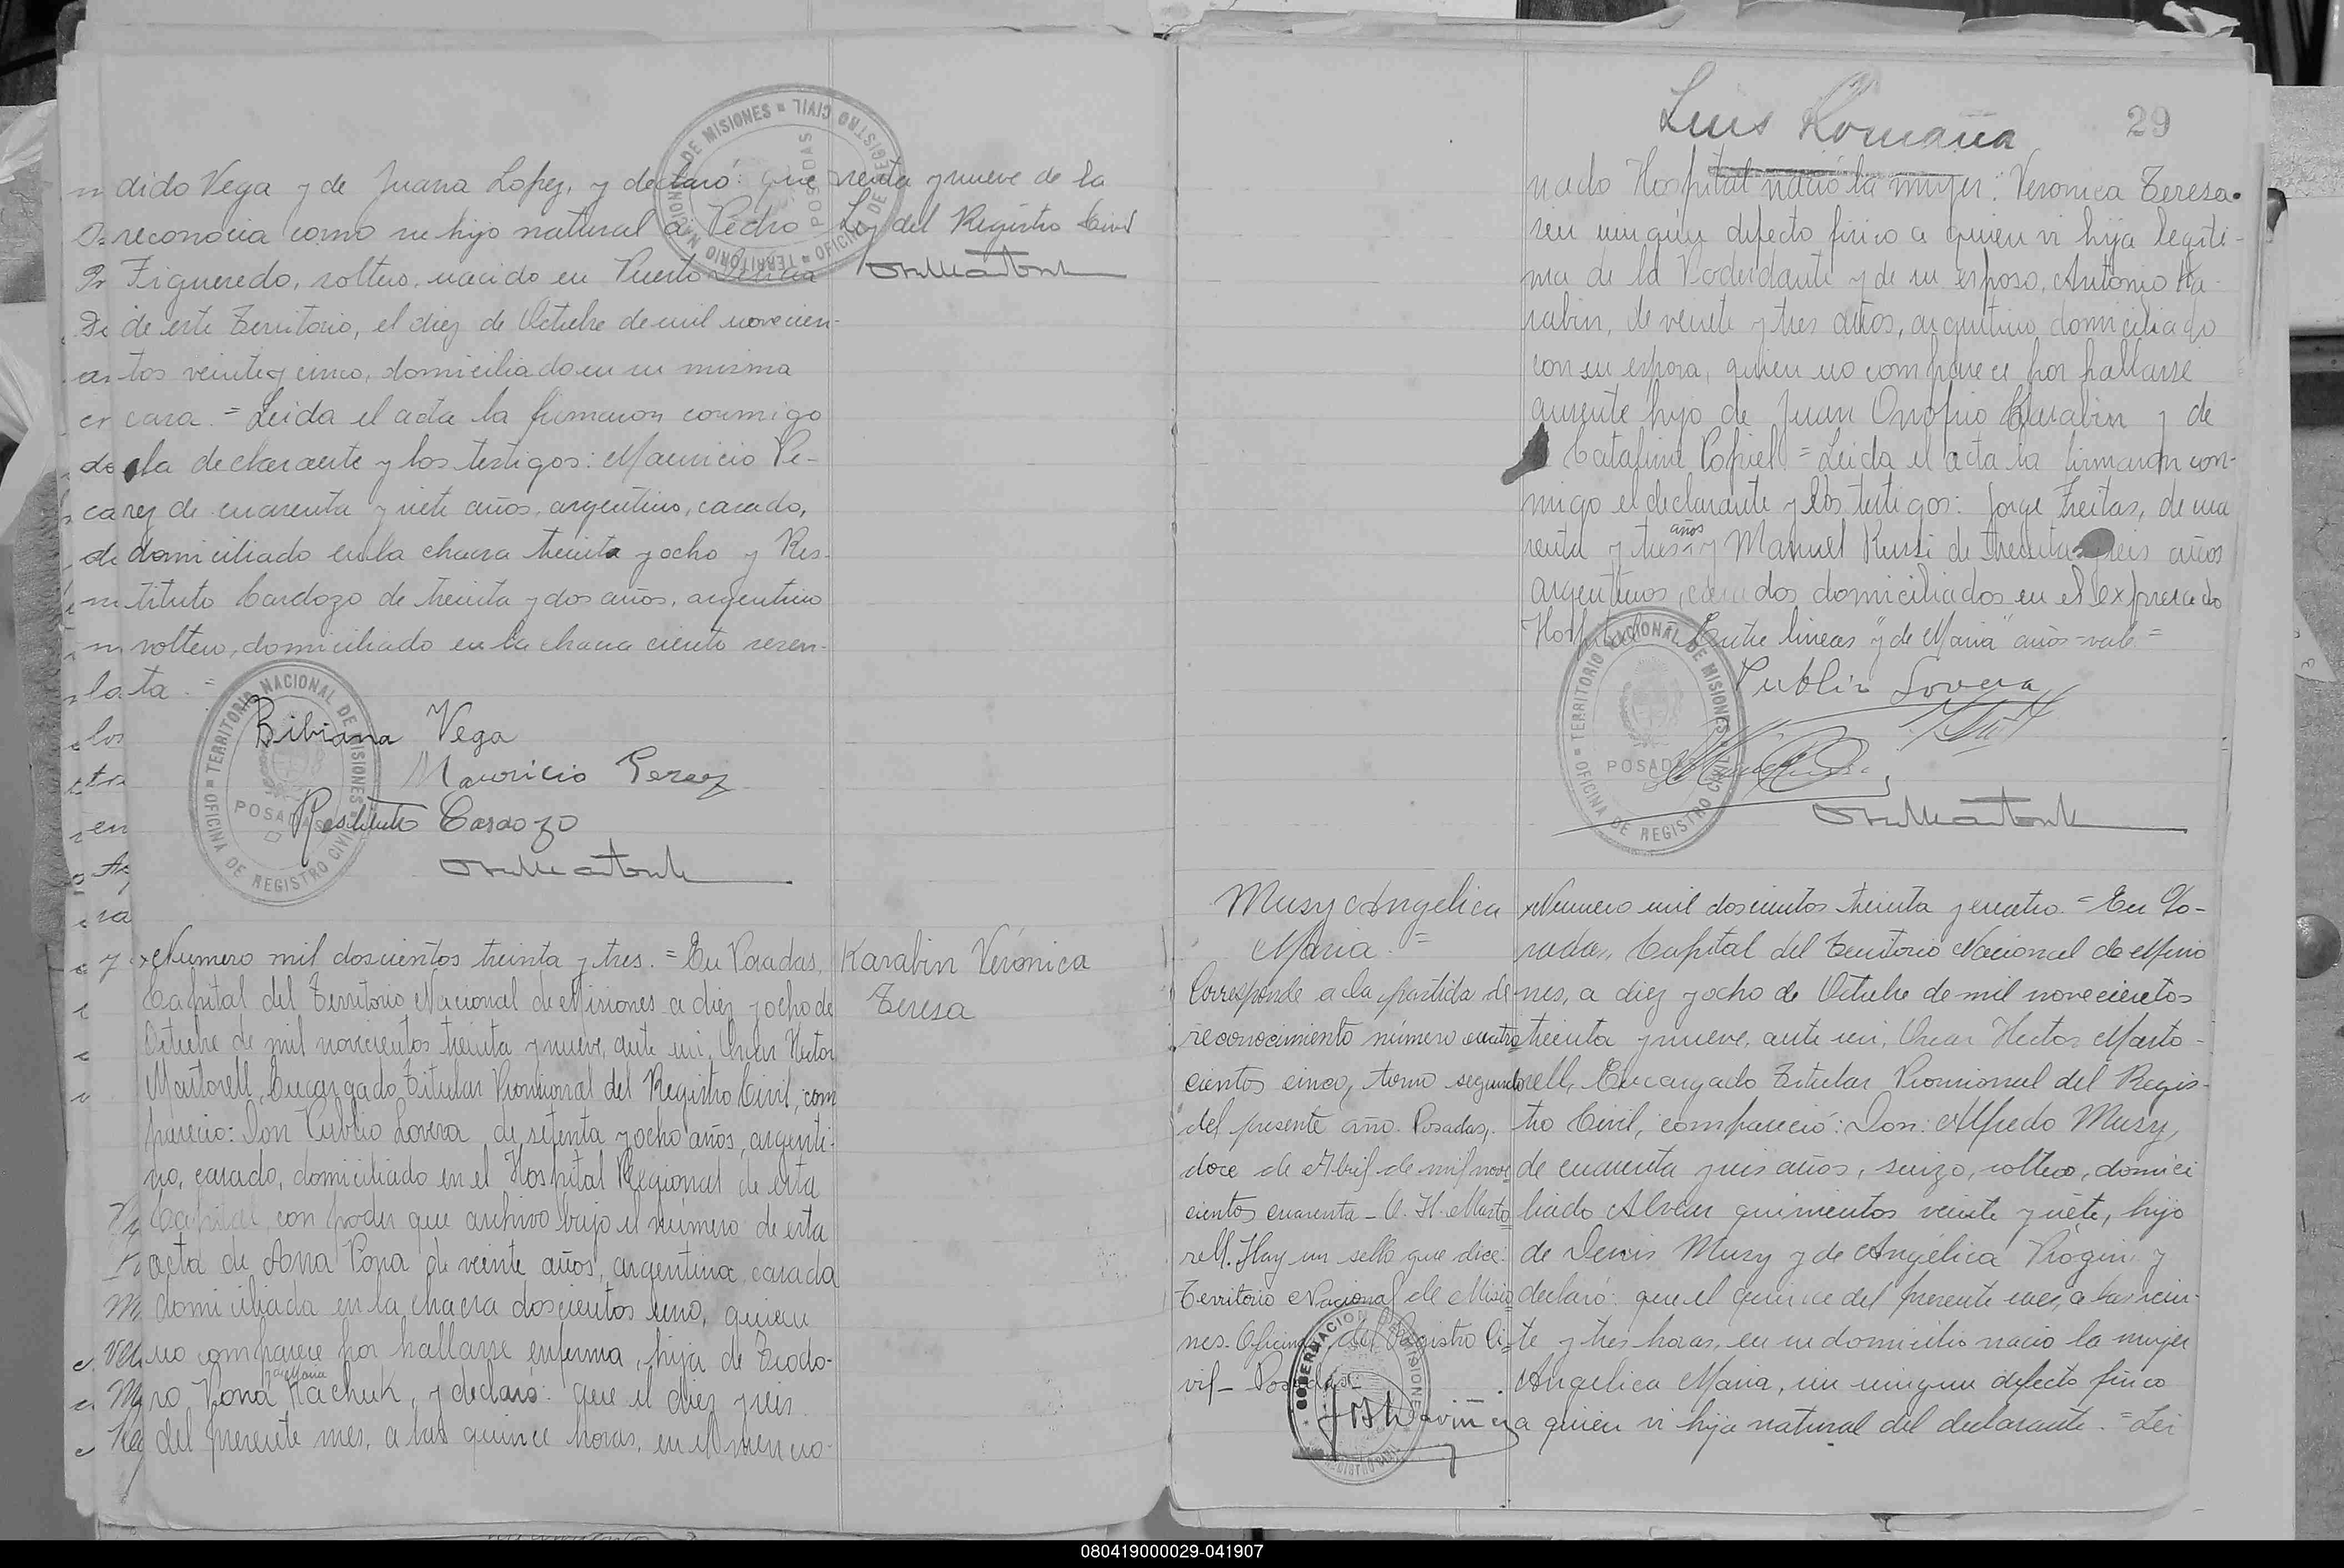 dido Vega y de Juana Lopez, y declaró: que
reconocia como su hijo natural a Pedro
Figueredo, soltero, nacido en Puerto
de este Territorio, el diez de Octubre de mil novecien-
tos veinte y cinco, domiciliado en su misma
casa. = Leida el acta la firmaron conmigo
la declarante y los testigos: Mauricio Pe-
rez de cuarenta y siete años, argentino, casado,
domiciliado en la chacra treinta y ocho y Res-
tituto Cardozo de treinta y dos años, argentino
soltero, domiciliado en la chacra ciento sesen-
ta. =
Bibiana Vega
Mauricio Perez
Restituto Cardozo
y nueve de la
Ley del Registro Civil
TERRITORIO NACIONAL DE MISIONES
OFICINA DE REGISTRO CIVIL
POSADAS
Karabin Verónica
Teresa
Numero mil doscientos treinta y tres. = En Posadas,
Capital del Territorio Nacional de Misiones a diez y ocho de
Octubre de mil novecientos treinta y nueve, ante mi, Oscar Hector
Martorell, Encargado Titular Provisional del Registro Civil, com
parecio: Don Publio Lovera de setenta y ocho años, argenti-
no, casado, domiciliado en el Hospital Regional de esta
Capital, con poder que archivo bajo el número de esta
acta de Ana Pona de veinte años, argentina, casada
domiciliada en la chacra doscientos uno, quien
no comparece por hallarse enferma, hija de Teodo-
y de Maria
ro Pona Kachuk, y declaró: que el diez y seis
del presente mes, a las quince horas, en el mencio-
Luis Romaña
29
nado Hospital nació la mujer: Veronica Teresa
sin ningún defecto fisico a quien vi hija legiti-
ma de la Poderdante y de su esposo, Antonio Ka-
rabin, de veinte y tres años, argentino domiciliado
con su esposa, quien no comparece por hallarse
ausente hijo de Juan Onofrio Karabin y de
Catalina Popiel = Leida el acta la firmaron con-
migo el declarante y los testigos: Jorge Freitas, de cua
años
renta y tres y Manuel Russi de treinta y seis años
argentinos, casados domiciliados en el expresado
Hospital = Entre lineas "y de Maria" años = vale =
Publio Lovera
TERRITORIO NACIONAL DE MISIONES
OFICINA DE REGISTRO CIVIL
POSADAS
Musy Angelica
Maria. =
Corresponde a la partida de
reconocimiento número cuatro
cientos cinco, tomo segundo
del presente año. Posadas,
doce de Abril de mil nove
cientos cuarenta - O. H. Marto
rell. Hay un sello que dice:
Territorio Nacional de Misio
nes. Oficina del Registro Ci=
vil - Posadas -
Numero mil doscientos treinta y cuatro. = En Po-
sadas, Capital del Territorio Nacional de Misio
nes, a diez y ocho de Octubre de mil novecientos
treinta y nueve, ante mi, Oscar Hector Marto-
rell, Encargado Titular Provisional del Regis-
tro Civil, compareció: Don: Alfredo Musy,
de cuarenta y seis años, suizo, soltero, domici
liado Alvear quinientos veinte y siete, hijo
de Denis Musy y de Angélica Progin y
declaró: que el quince del presente mes, a las vein-
te y tres horas, en su domicilio nació la mujer
Angelica Maria, sin ningun defecto fisico
a quien vi hija natural del declarante. = Lei
080419000029-041907